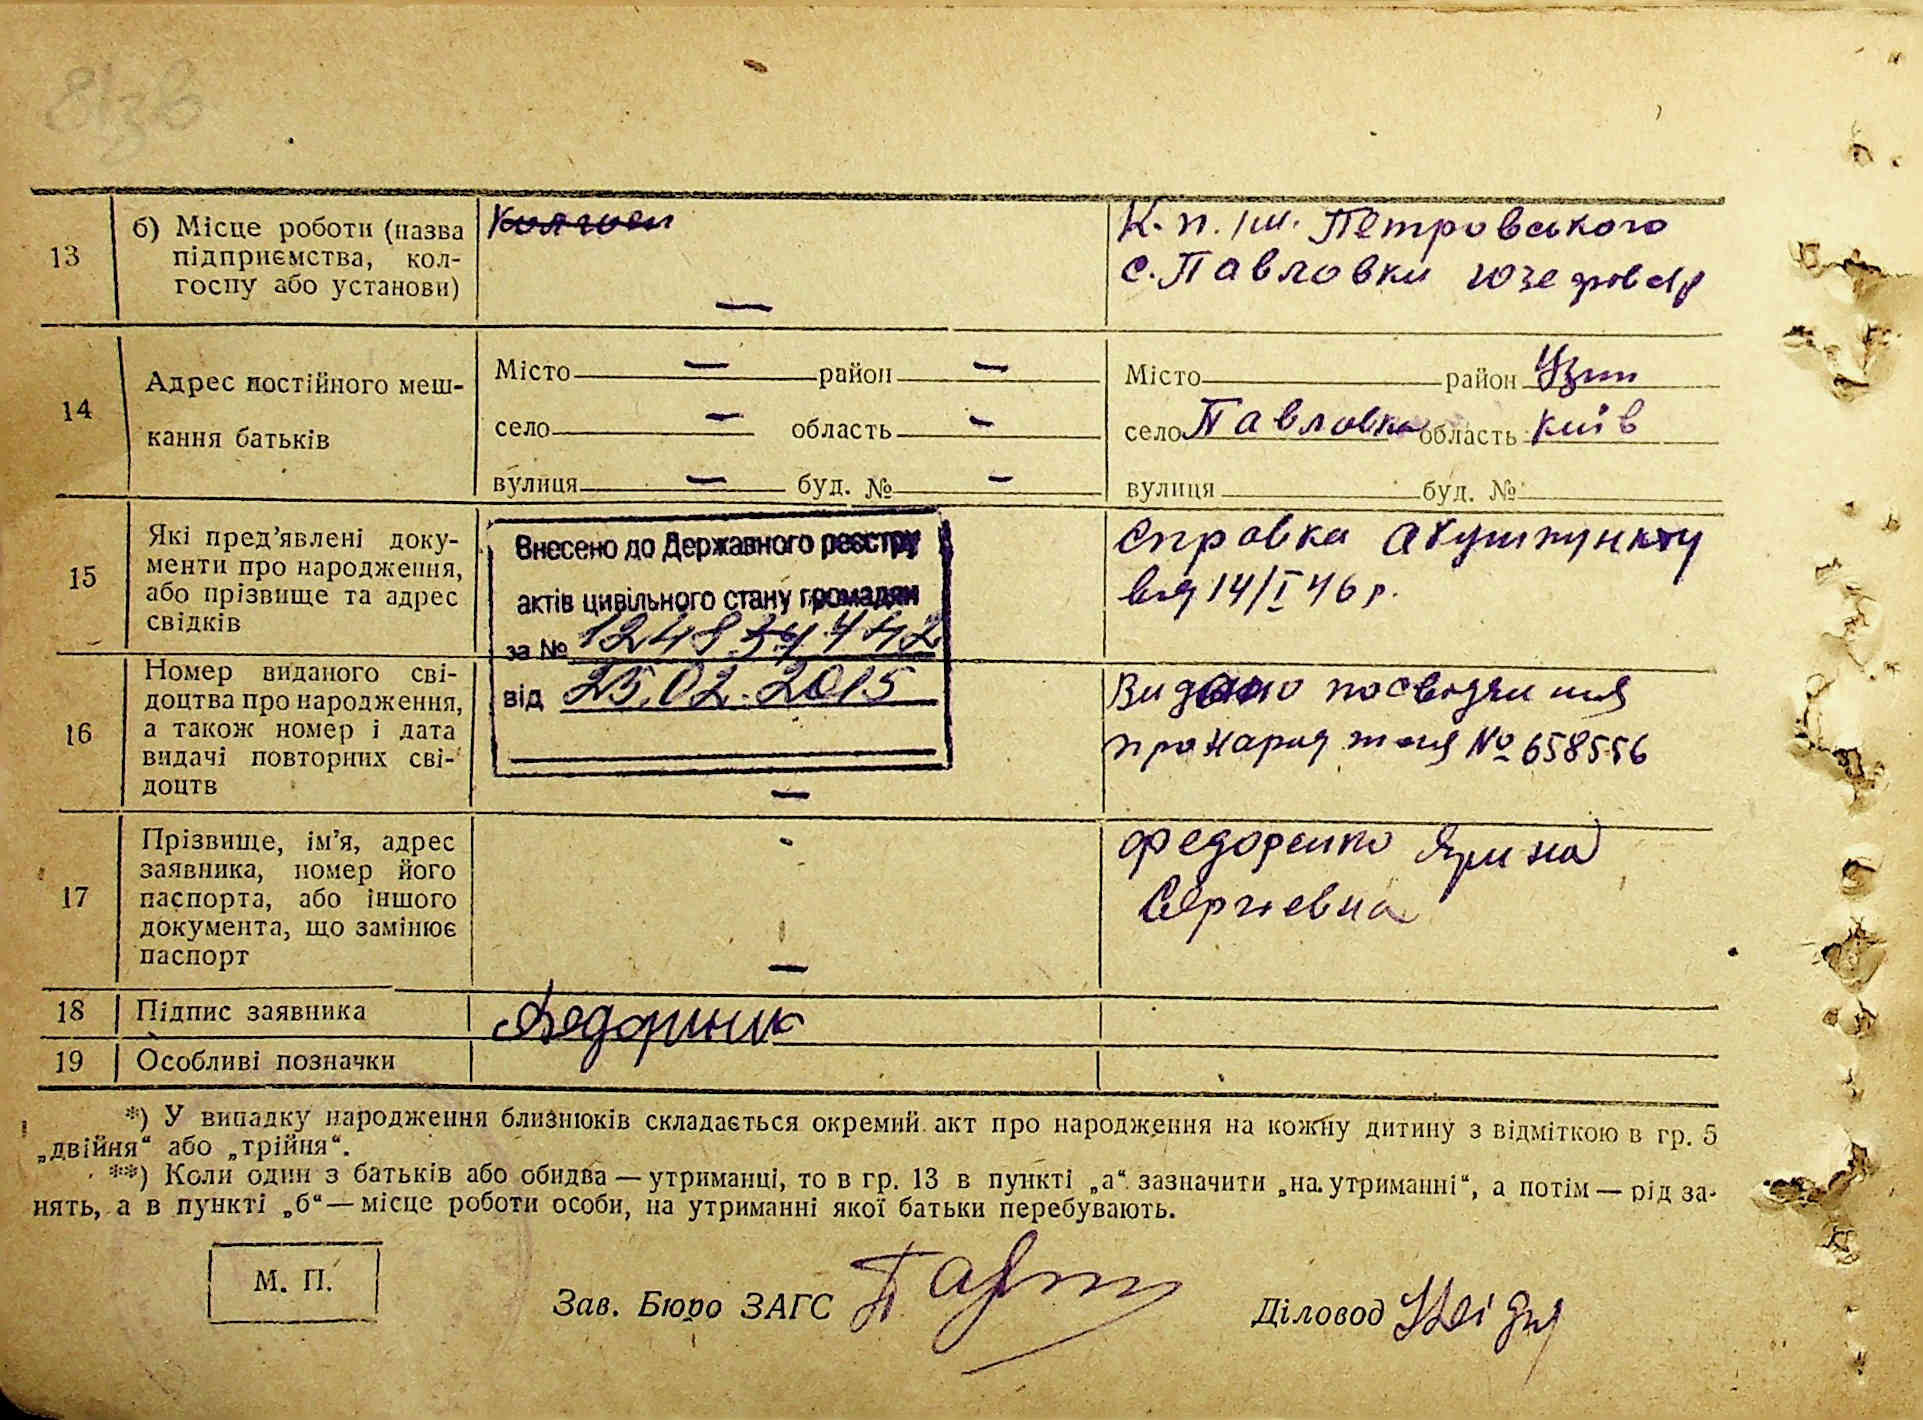 13
б) Місце роботи (назва
підприємства, кол-
госпу або установи)
—
К. п. ім. Петровського
с. Павловки
14
Адрес постійного меш-
кання батьків
Місто — район —
село — область —
вулиця — буд. № —
Місто район Узин
село Павловка область Київ
вулиця буд. №
15
Які пред’явлені доку-
менти про народження,
або прізвище та адрес
свідків
Внесено до Державного реєстру
актів цивільного стану громадян
за №
від 25.02.2015
Справка Акушпункту
від 14/I 46 р.
16
Номер виданого сві-
доцтва про народження,
а також номер і дата
видачі повторних сві-
доцтв
—
Видано посвідчення
про народження № 658556
17
Прізвище, ім’я, адрес
заявника, номер його
паспорта, або іншого
документа, що замінює
паспорт
—
Федоренко Ярина
Сергіевна
18
Підпис заявника
19
Особливі позначки
*) У випадку народження близнюків складається окремий акт про народження на кожну дитину з відміткою в гр. 5
„двійня“ або „трійня“.
**) Коли один з батьків або обидва — утриманці, то в гр. 13 в пункті „а“ зазначити „на утриманні“, а потім — рід за-
нять, а в пункті „б“ — місце роботи особи, на утриманні якої батьки перебувають.
М. П.
Зав. Бюро ЗАГС
Діловод